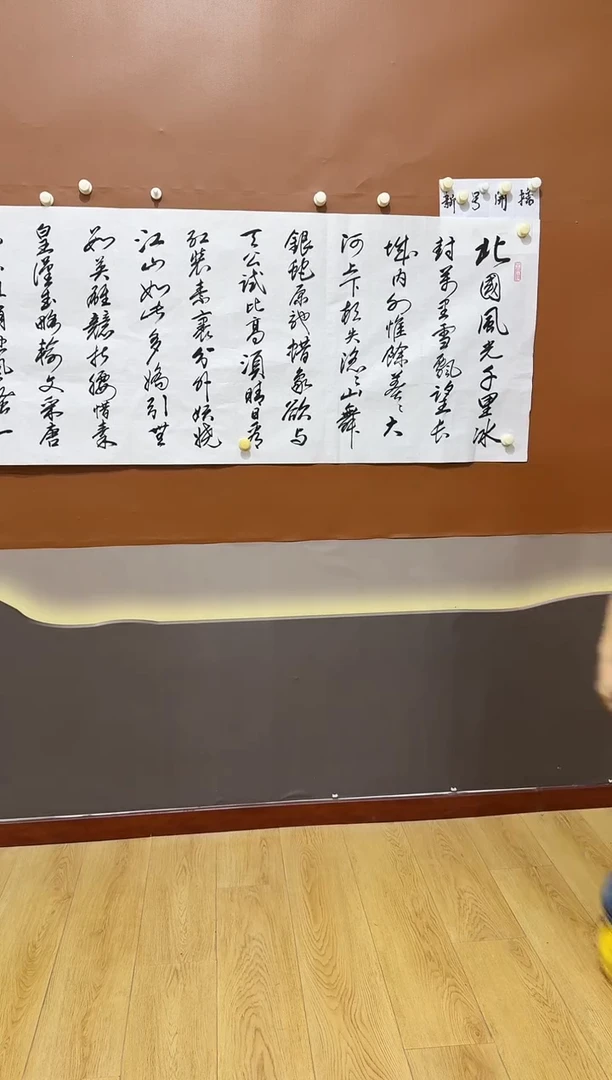 新号開播
北國風光千里冰
封萬里雪飄望長
城内外惟餘莽〻大
河上下頓失滔〻山舞
銀蛇原馳蜡象欲与
天公試比高須晴日看
红装素裹分外妖娆
江山如此多嬌引無
英雄競折腰惜秦
皇漢武略輸文采唐
風騷一